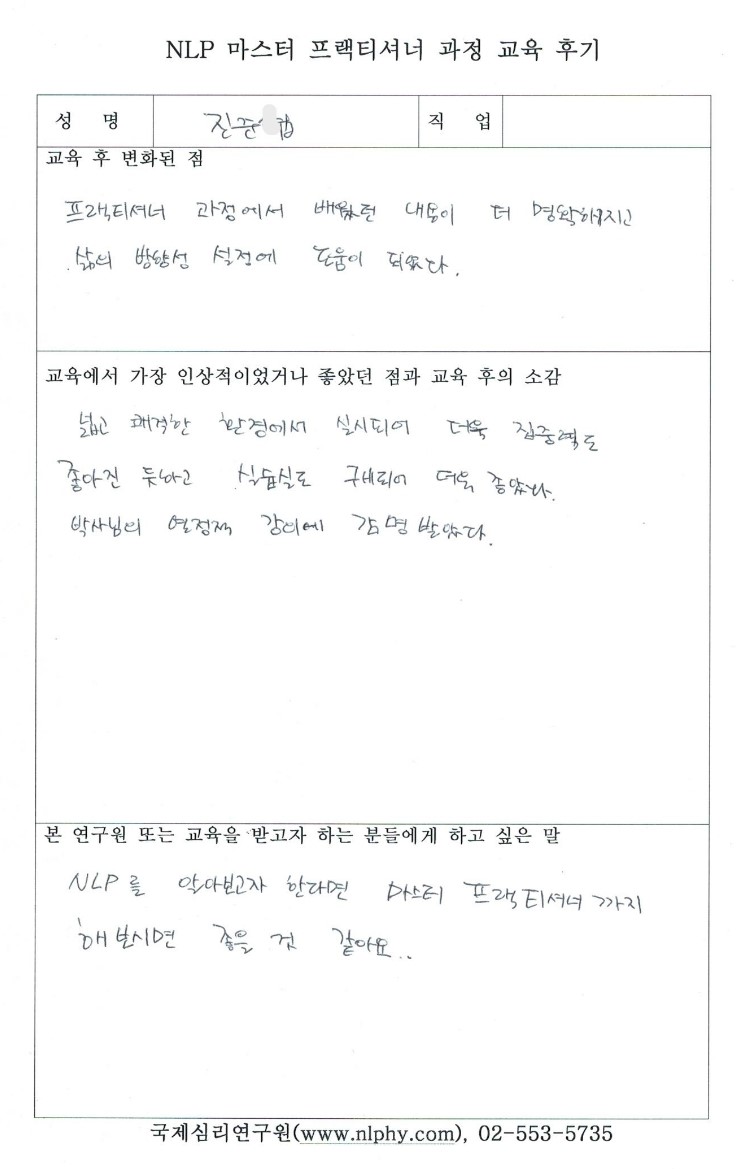 NLP 마스터 프랙티셔너 과정 교육 후기
성 명 진준 직 업
교육 후 변화된 점
프랙티셔너 과정에서 배웠던 내용이 더 명확해지고
삶의 방향성 설정에 도움이 되었다.
교육에서 가장 인상적이었거나 좋았던 점과 교육 후의 소감
넓고 쾌적한 환경에서 실시되어 더욱 집중력도
좋아진 듯하고 실습실도 구비되어 더욱 좋았다.
박사님의 열정적 강의에 감명 받았다.
본 연구원 또는 교육을 받고자 하는 분들에게 하고 싶은 말
NLP를 알아보고자 한다면 마스터 프랙티셔너까지
해보시면 좋을 것 같아요..
국제심리연구원(www.nlphy.com), 02-553-5735